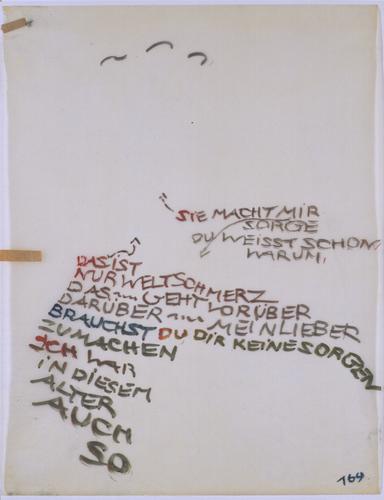 SIE MACHT MIR
SORGE
DU WEISST SCHON,
WARUM.
DAS IST
NUR WELTSCHMERZ
DAS GEHT VORÜBER
DARÜBER MEIN LIEBER
BRAUCHST DU DIR KEINE SORGEN
ZU MACHEN
ICH WAR
IN DIESEM
ALTER
AUCH
SO
169